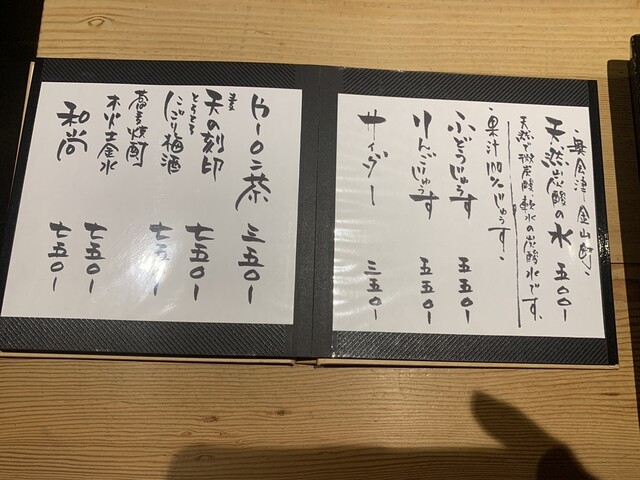 奥会津金山町
天然炭酸の水 五〇〇ー
天然で微炭酸、軟水の炭酸水です。
果汁100%じゅーす
ぶどうじゅーす 五五〇ー
りんごじゅーす 五五〇ー
サイダー 三五〇ー
ウーロン茶 三五〇ー
麦
天の刻印 七五〇ー
とろとろ
にごり梅酒 七五〇ー
蕎麦焼酎
木火土金水 七五〇ー
和尚 七五〇ー